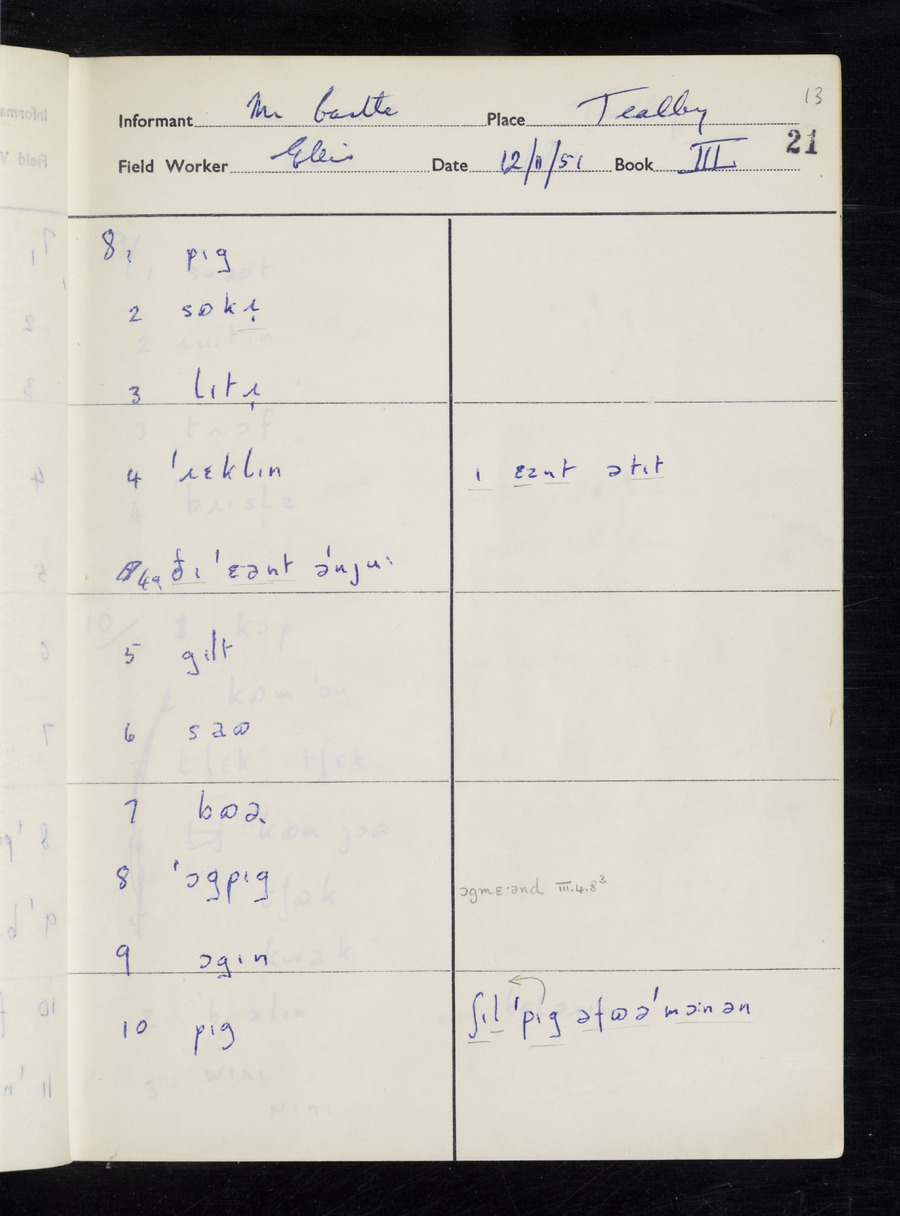 13
Informant Mr Castle Place Tealby
21
Field Worker Ellis Date 12/11/51 Book III.
8 1 pɪg
2 sɷkɪ̣
3 lɪtɹ̣
4 ˈɹɛklɪn ɪ ɛənt ətɪt
4a ðɪ ˈɛənt ənjuˑ
5 gɪlt
6 saɷ
7 bɷə
8 ˈɔgpɪg ɔgmɛˑənd III.4.8³
9 ɔgɪn
10 pɪg ʃɪl ˈpɪg əfɷəˈmɔːnən